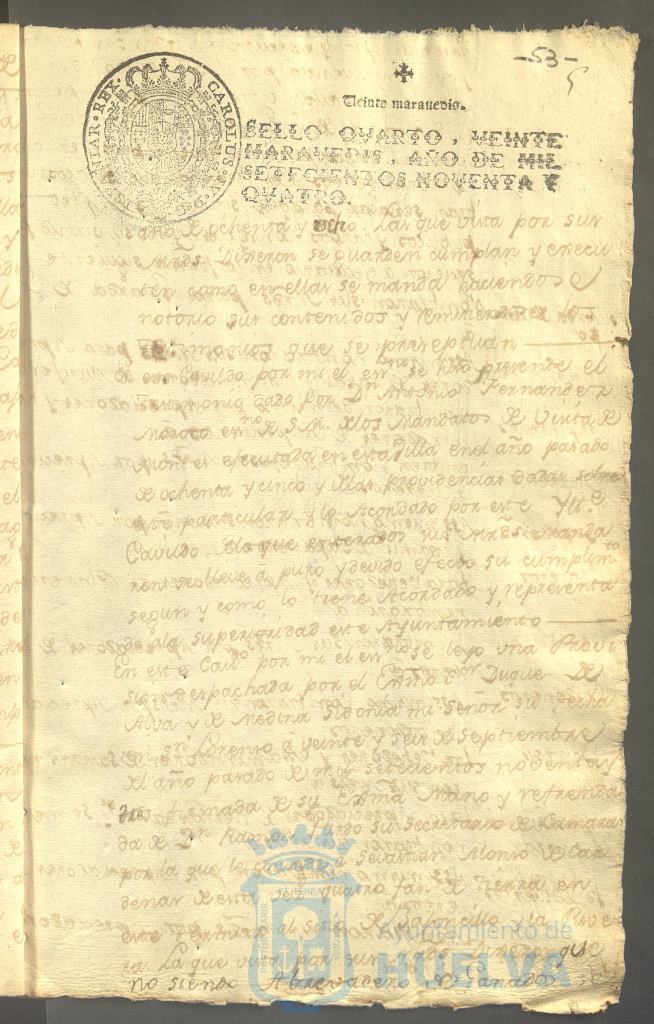 -53-
CAROLUS IV HISPANIAR REX
Veinte maravedis.
SELLO QVARTO, VEINTE
MARAVEDIS, AÑO DE MIL
SETECIENTOS NOVENTA Y
QVATRO.
año de ochenta y ocho. Las que vista por sus
Mrds. Dixeron se guarden cumplan y execu
ten como en ellas se manda haciendose
notorio sus contenidos y remitiendose los
testimonios que se preseptuan
En este Cavildo por mi el essno. se hizo presente el
testimonio dado por Dn. Antonio Fernandez
en no. de S.M. de los Mandatos de Visita de
executada en esta villa en el año pasado
de ochenta y cinco y de las providencias dadas sobre
este particular y lo Acordado por este Ytt.e
Cavildo. de lo que enterados sus Mrds. Manda
ron se lleve a puro y devido efecto su cumplim.to
segun y como lo tiene Acordado y representa
do a la superioridad este Ayuntamiento
En este Cavdo. por mi el essno. se leyo una Provi
sion despachada por el Exmo. Sor Duque de
Alva y de Medina Sidonia mi Señor su fecha
en Sn. Lorenzo a veinte y seis de Septiembre
del año pasado de mil setecientos noventa y
tres firmada de su Exma. Mano y refrenda
da de Dn. Ramon Pardo su Secretario de Camara
por la que le a Sevastian Alonso de Car
denas Desta vez. quatro fan.s de tierra en
este termino al sitio de Baloncillo y la Rive
ra La que vista por sus Mrds. Dixeron que
no siendo Abrevadero de Ganados
Ayuntamiento de
HUELVA